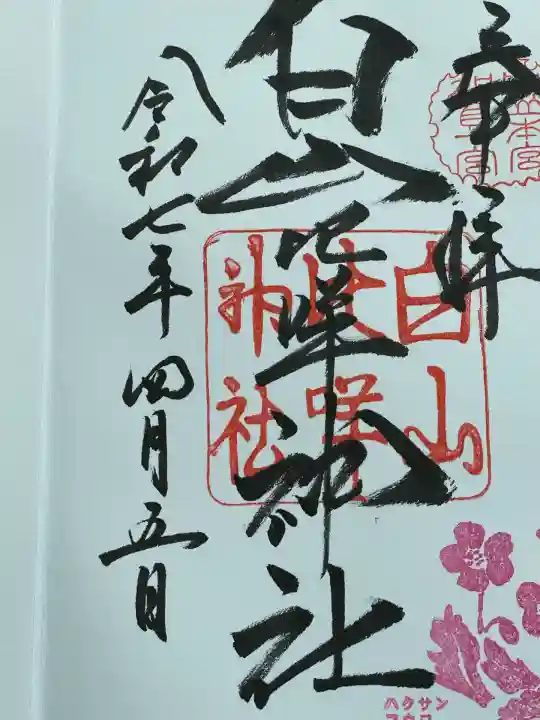 奉拝
白山比咩神社
白山
比咩
神社
令和七年四月五日
ハクサン